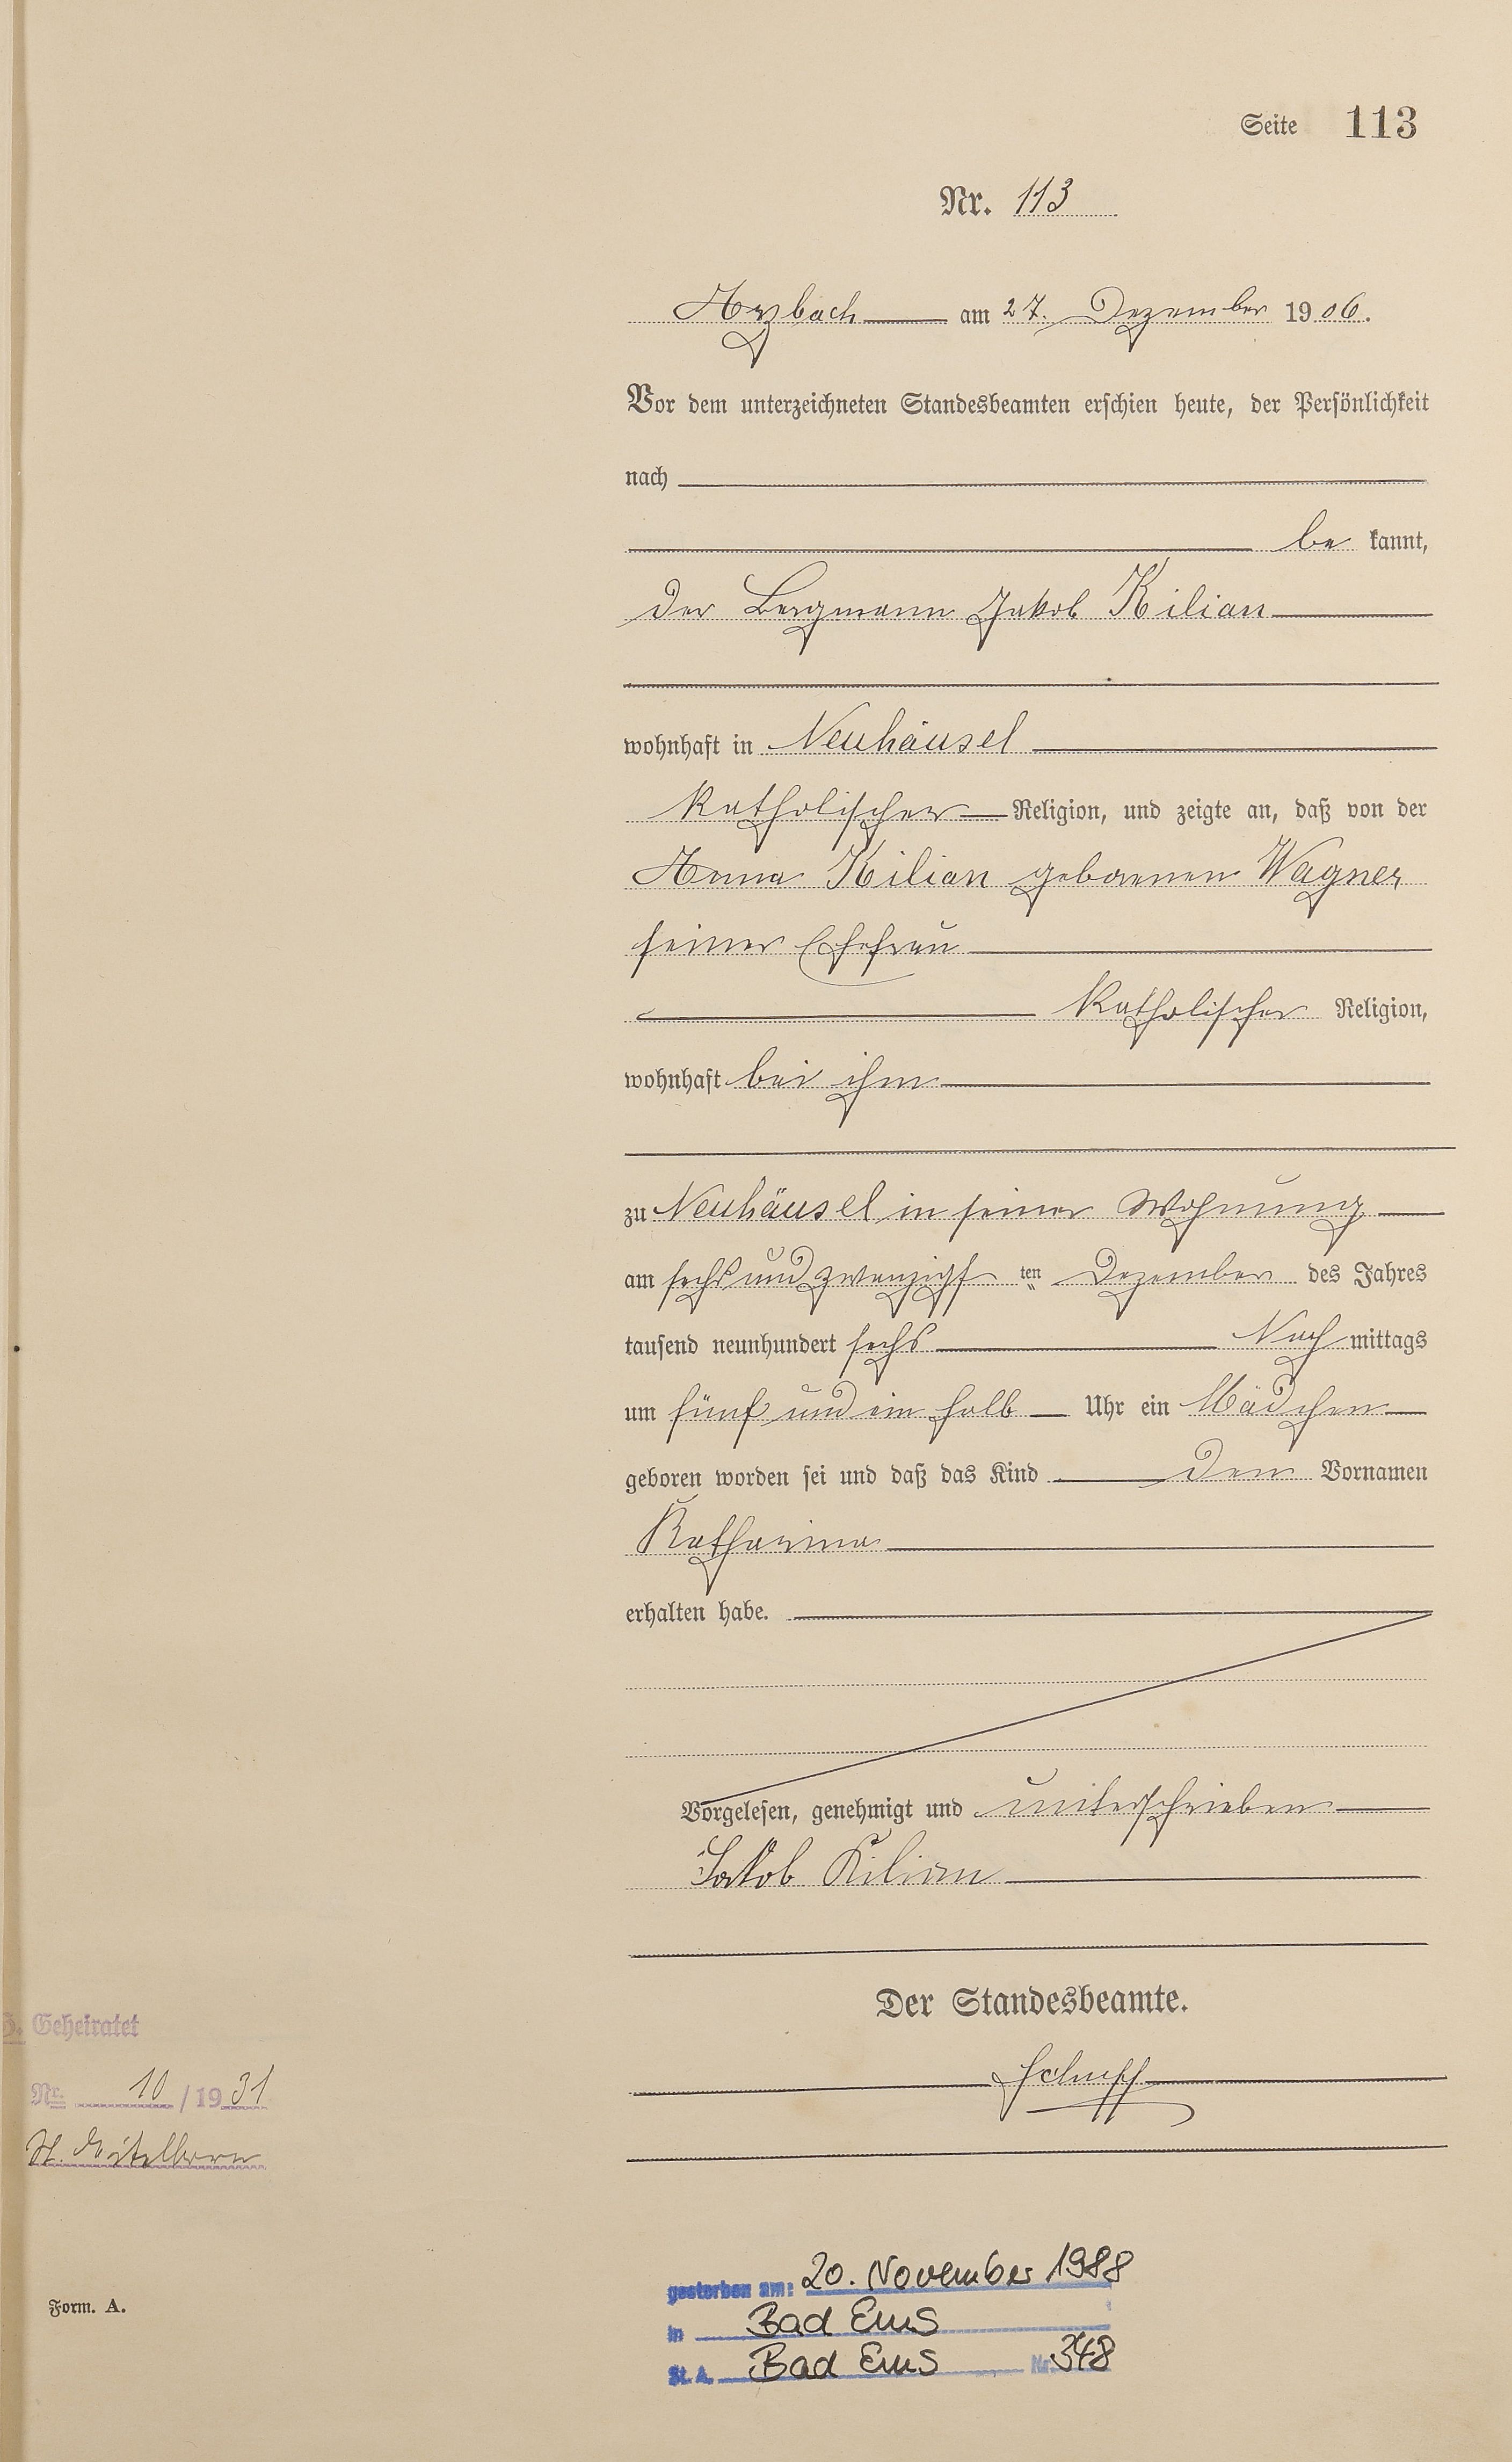 Seite 113
Nr. 113
Arzbach am 27. Dezember 1906.
Vor dem unterzeichneten Standesbeamten erschien heute, der Persönlichkeit
nach
be kannt,
der Bergmann Jakob Kilian
wohnhaft in Neuhäusel
katholischer Religion, und zeigte an, daß von der
Anna Kilian geborenen Wagner
seiner Ehefrau
katholischer Religion,
wohnhaft bei ihm
zu Neuhäusel in seiner Wohnung
am sechs und zwanzigs ten Dezember des Jahres
tausend neunhundert sechs Nach mittags
um fünf und ein halb Uhr ein Mädchen
geboren worden sei und daß das Kind den Vornamen
Katharina
erhalten habe.
Vorgelesen, genehmigt und unterschrieben
Jakob Kilian
Der Standesbeamte.
Schupp
Geheiratet
Nr. 10 / 1931
gestorben am: 20. November 1988
in Bad Ems
St. A. Bad Ems Nr. 348
Form. A.